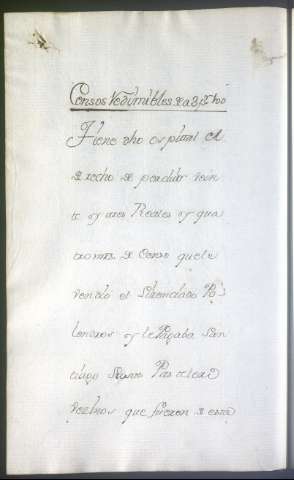 Censos Redimibles a 3 p% 100
Tiene dho ospital el
derecho de percibir vein
te y tres Reales y qua
tro mrs. de Censo que le
vendio el Lizenciado
y le Pagaba San
tiago Parcelas
vezinos que fueron de esta